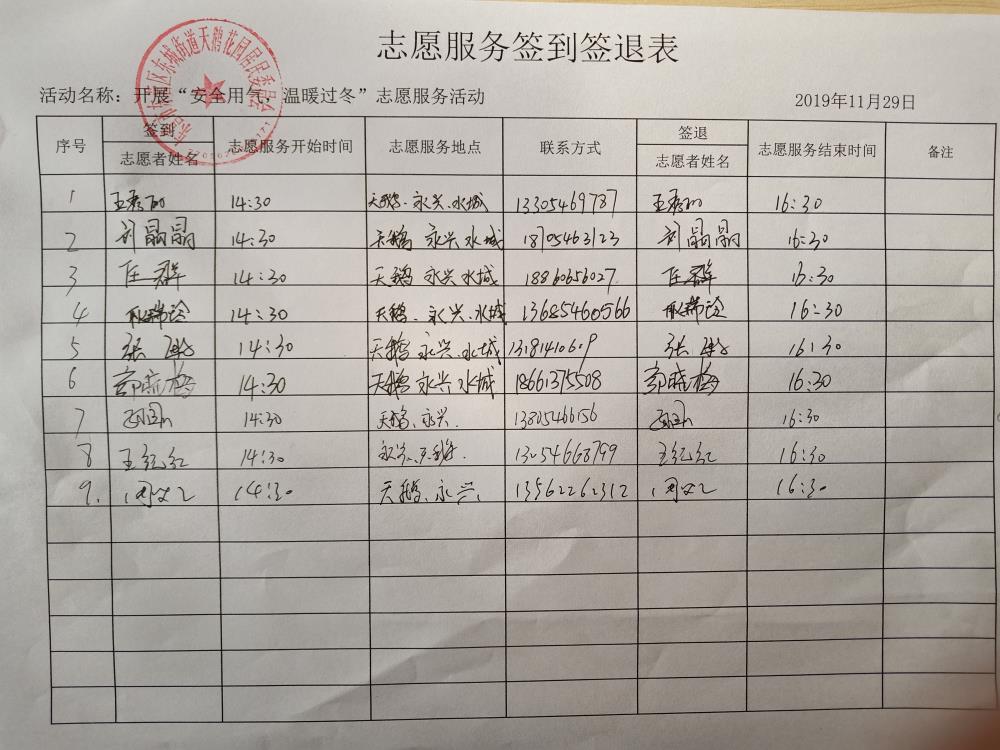 志愿服务签到签退表
活动名称：开展“安全用气，温暖过冬”志愿服务活动 2019年11月29日
序号 签到 志愿者姓名 志愿服务开始时间 志愿服务地点 联系方式 签退 志愿者姓名 志愿服务结束时间 备注
1 14:30 天鹅、永兴、水城 13305469787 16:30
2 刘晶晶 14:30 天鹅 永兴 水城 18705463123 刘晶晶 16:30
3 任群 14:30 天鹅 永兴 水城 18860656027 任群 16:30
4 14:30 天鹅、永兴、水城 13685460566 16:30
5 张 14:30 天鹅 永兴、水城 13181410609 张 16:30
6 郭晓梅 14:30 天鹅 永兴 水城 18661375508 郭晓梅 16:30
7 14:30 天鹅、永兴 13805466156 16:30
8 王红红 14:30 永兴、天鹅 13054668799 王红红 16:30
9. 14:30 天鹅、永兴、 13562262312 16:30
东城街道天鹅花园居民委员会